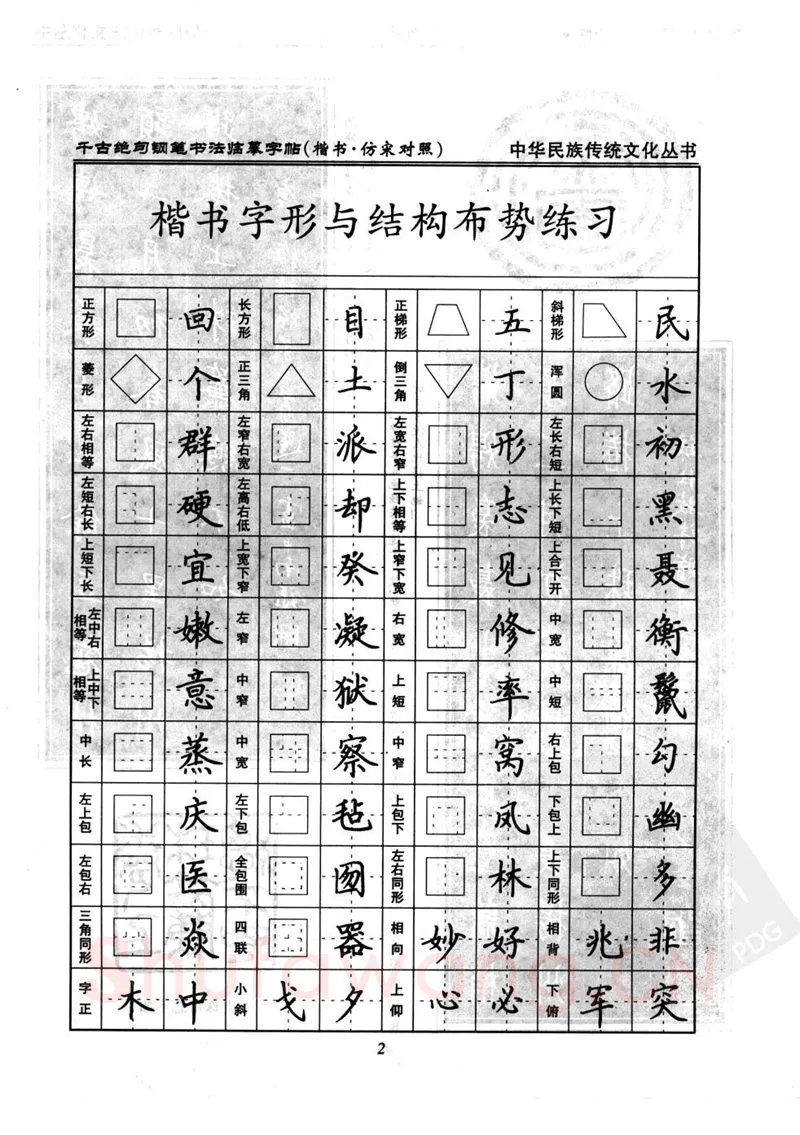 千古绝句钢笔书法临摹字帖(楷书·仿宋对照) 中华民族传统文化丛书
楷书字形与结构布势练习
正方形 回 长方形 目 正梯形 五 斜梯形 民
菱形 个 正三角 土 倒三角 丁 浑圆 水
左右相等 群 左窄右宽 派 左宽右窄 形 左长右短 初
左短右长 硬 左高右低 却 上下相等 志 上长下短 黑
上短下长 宜 上宽下窄 癸 上窄下宽 见 上合下开 聂
左中右相等 嫩 左窄 凝 右宽 修 中宽 衡
上中下相等 意 中窄 狱 上短 率 中短
中长 蒸 中宽 察 中窄 窝 右上包 勾
左上包 庆 左下包 毡 上包下 凤 下包上 幽
左包右 医 全包围 囫 左右同形 林 上下同形 多
三角同形 焱 四联 器 相向 妙 好 相背 兆 非
字正 木 中 小斜 戈 夕 上仰 心 必 下俯 军 突
2
shufawang.CN
PDG